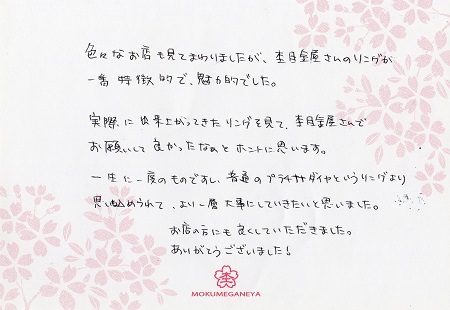 色々なお店も見てまわりましたが、杢目金屋さんのリングが
一番特徴的で、魅力的でした。
実際に出来上がってきたリングを見て、杢目金屋さんで
お願いして良かったなぁとホントに思います。
一生に一度のものですし、普通のプラチナダイヤというリングより
思い込められて、より一層大事にしていきたいと思いました。
お店の方にも良くしていただきました。
ありがとうございました!
MOKUMEGANEYA